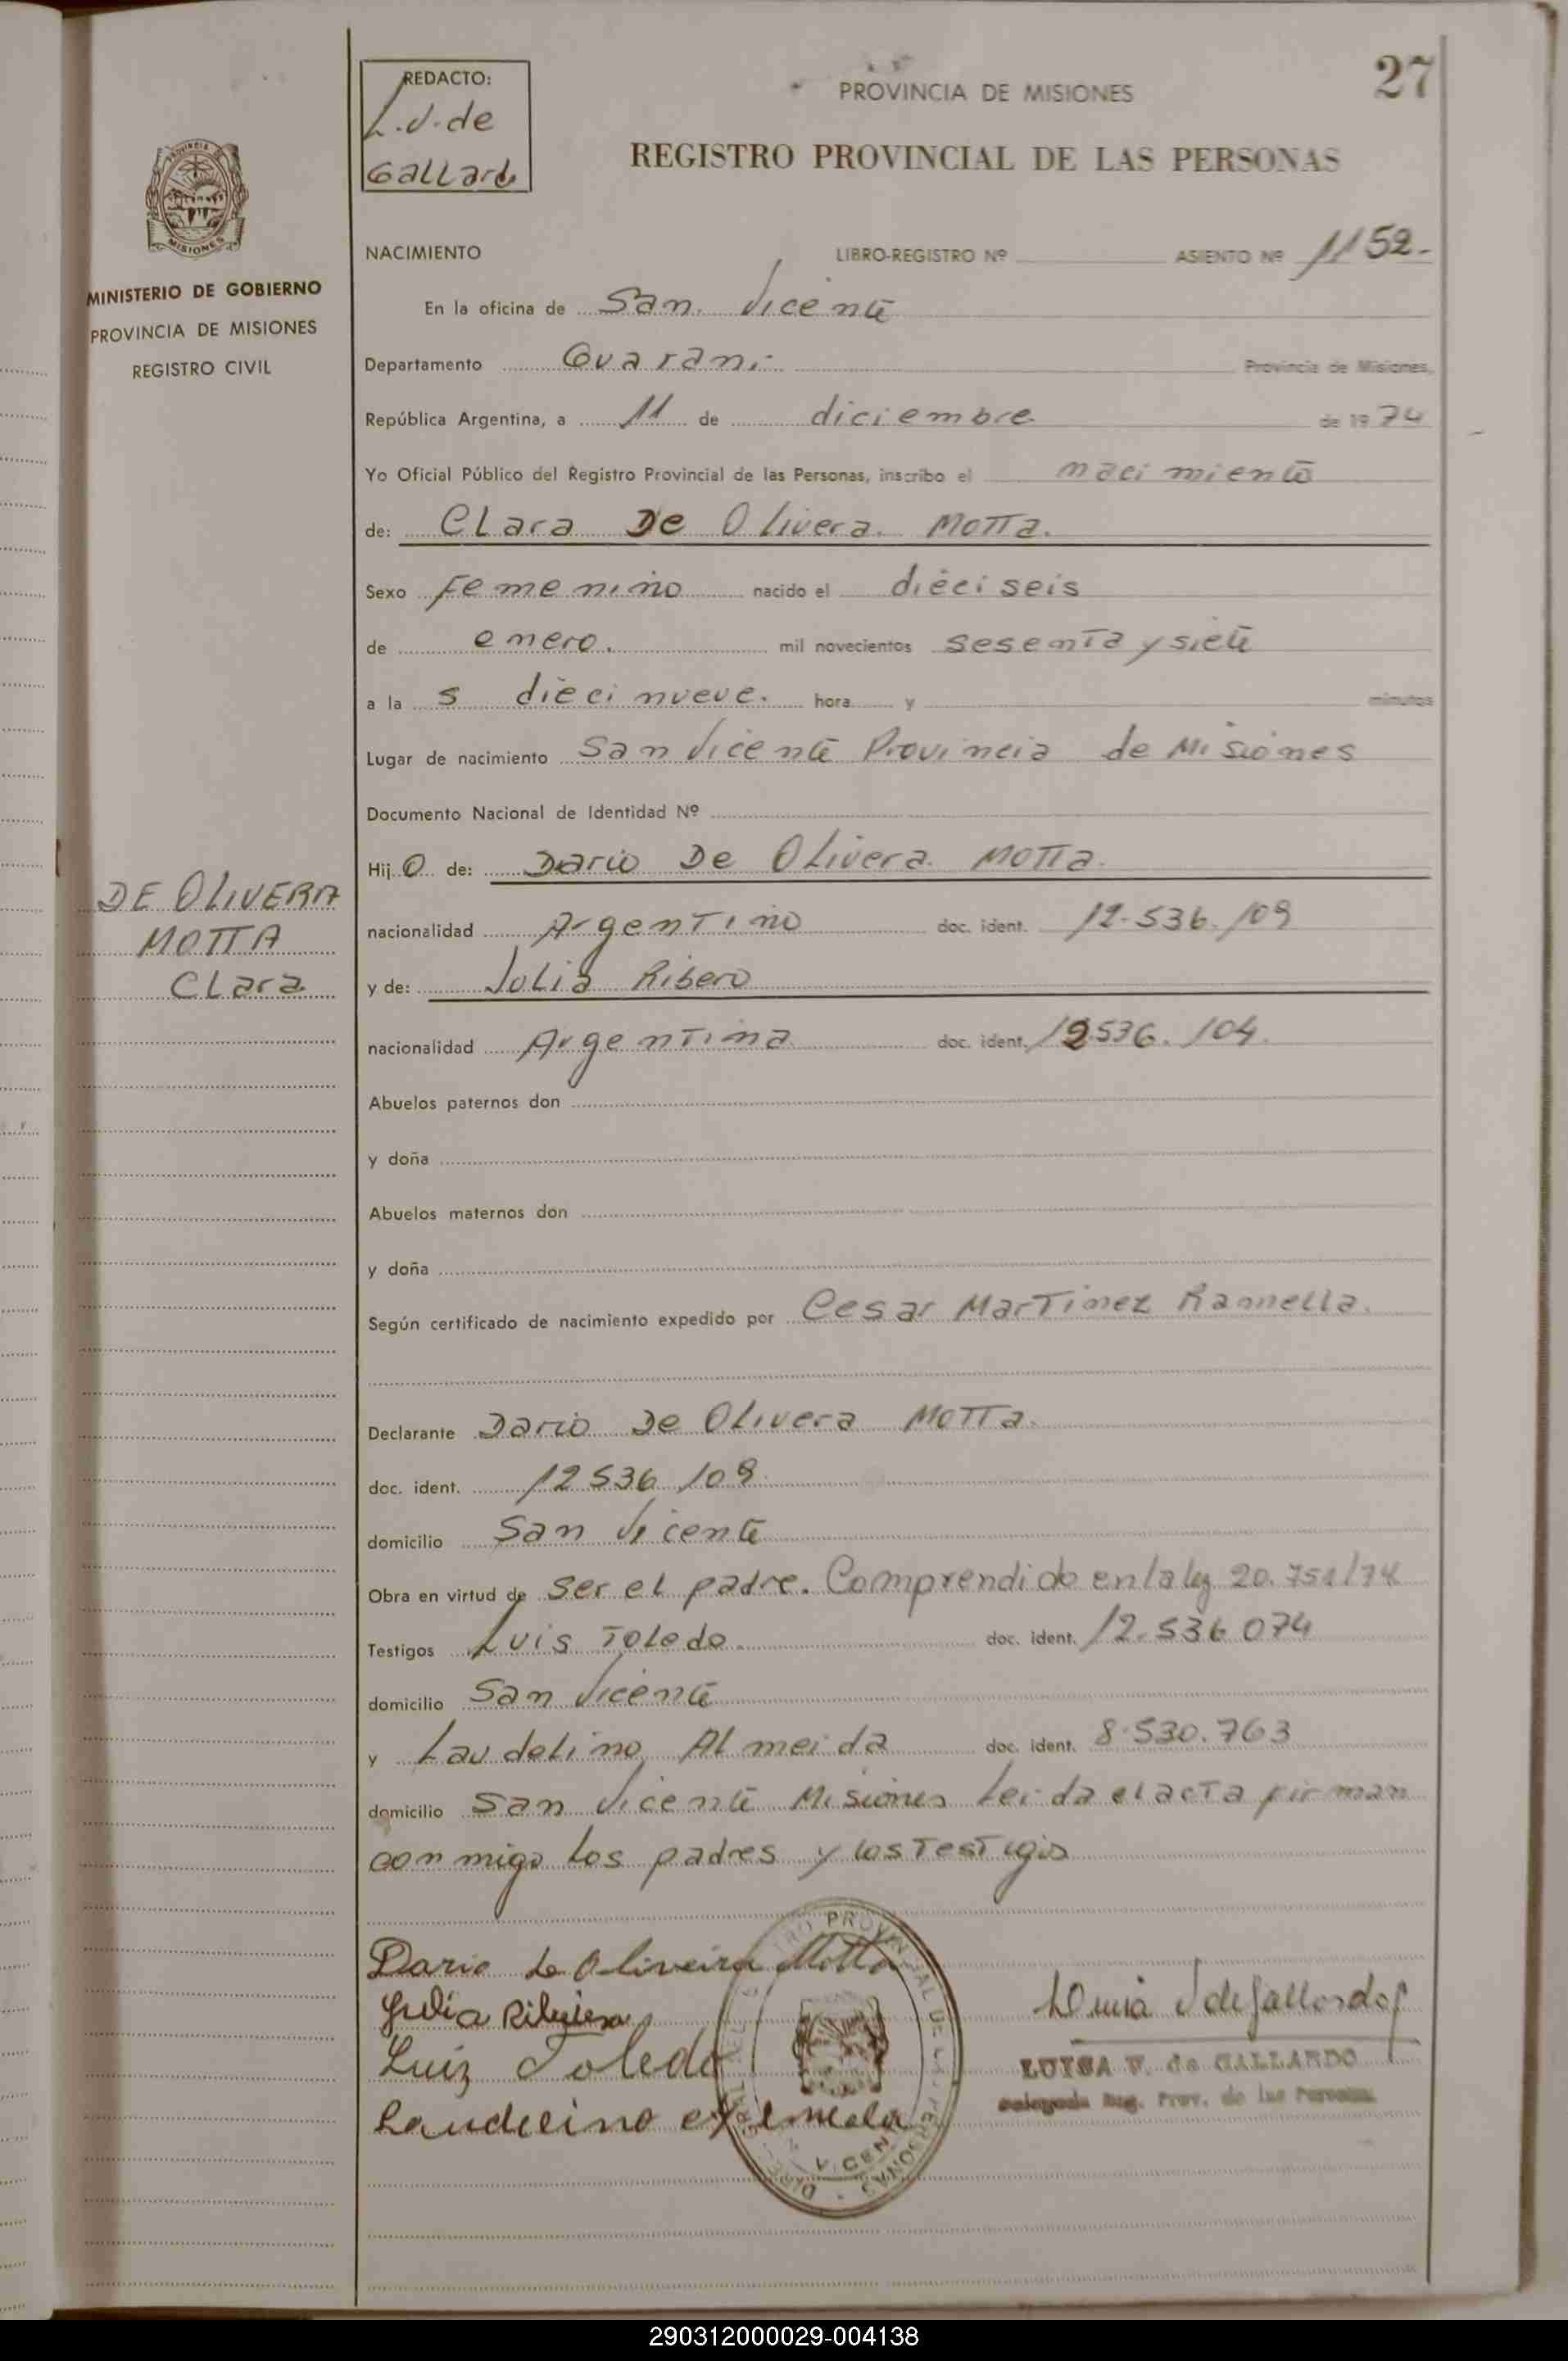 27
REDACTO:
L.V. de
Gallardo
PROVINCIA DE MISIONES
REGISTRO PROVINCIAL DE LAS PERSONAS
PROVINCIA DE
MISIONES
MINISTERIO DE GOBIERNO
PROVINCIA DE MISIONES
REGISTRO CIVIL
NACIMIENTO LIBRO-REGISTRO Nº ASIENTO Nº 1152.-
En la oficina de San Vicente
Departamento Guarani Provincia de Misiones,
República Argentina, a 11 de diciembre de 1974
Yo Oficial Público del Registro Provincial de las Personas, inscribo el nacimiento
de: Clara De Olivera Motta.
Sexo Femenino nacido el dieciseis
de enero. mil novecientos sesenta y siete
a la s diecinueve. hora y minutos
Lugar de nacimiento San Vicente Provincia de Misiones
Documento Nacional de Identidad Nº
Hij o de: Dario De Olivera Motta.
DE OLIVERA
MOTTA
Clara
nacionalidad Argentino doc. ident. 12.536.109
y de: Julia Ribero
nacionalidad Argentina doc. ident. 12.536.104.
Abuelos paternos don
y doña
Abuelos maternos don
y doña
Según certificado de nacimiento expedido por Cesar Martinez Ramella.
Declarante Dario De Olivera Motta.
doc. ident. 12536109.
domicilio San Vicente
Obra en virtud de ser el padre. Comprendido en la ley 20.751/74
Testigos Luis Toledo. doc. ident. 12.536.074
domicilio San Vicente
y Laudelino Almeida doc. ident. 8.530.763
domicilio San Vicente Misiones Leida el acta firman
conmigo los padres y los testigos
Dario de Oliveira Motta
Julia Ribeiro
Luiz Toledo
Laudelino
LUISA V. de GALLARDO
Delegada Reg. Prov. de las Personas
290312000029-004138